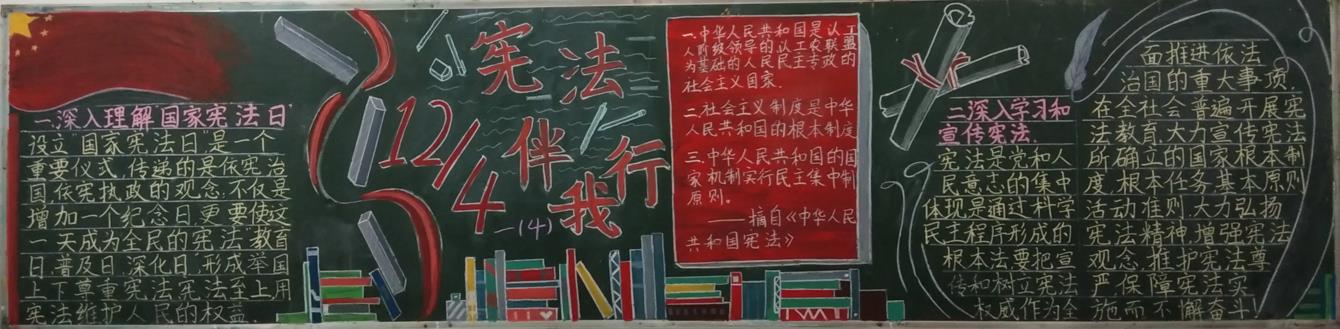 一.深入理解"国家宪法日"
设立"国家宪法日"是一个
重要仪式,传递的是依宪治
国依宪执政的观念.不仅是
增加一个纪念日,更要使这
一天成为全民的宪法"教育
日,普及日,深化日"形成举国
上下尊重宪法,宪法至上用
宪法维护人民的权益.
宪法
12/4伴我行
一(4)
一.中华人民共和国是以工
人阶级领导的以工农联盟
为基础的人民民主专政的
社会主义国家.
二.社会主义制度是中华
人民共和国的根本制度
三.中华人民共和国的国
家机制实行民主集中制
原则。
——摘自《中华人民
共和国宪法》
二深入学习和
宣传宪法.
宪法是党和人
民意志的集中
体现是通过科学
民主程序形成的
根本法要把宣
传和树立宪法
权威作为全
面推进依法
治国的重大事项.
在全社会普遍开展宪
法教育大力宣传宪法
所确立的国家根本制
度.根本任务.基本原则
活动准则大力弘扬
宪法精神,增强宪法
观念,维护宪法尊
严.保障宪法实
施而不懈奋斗!